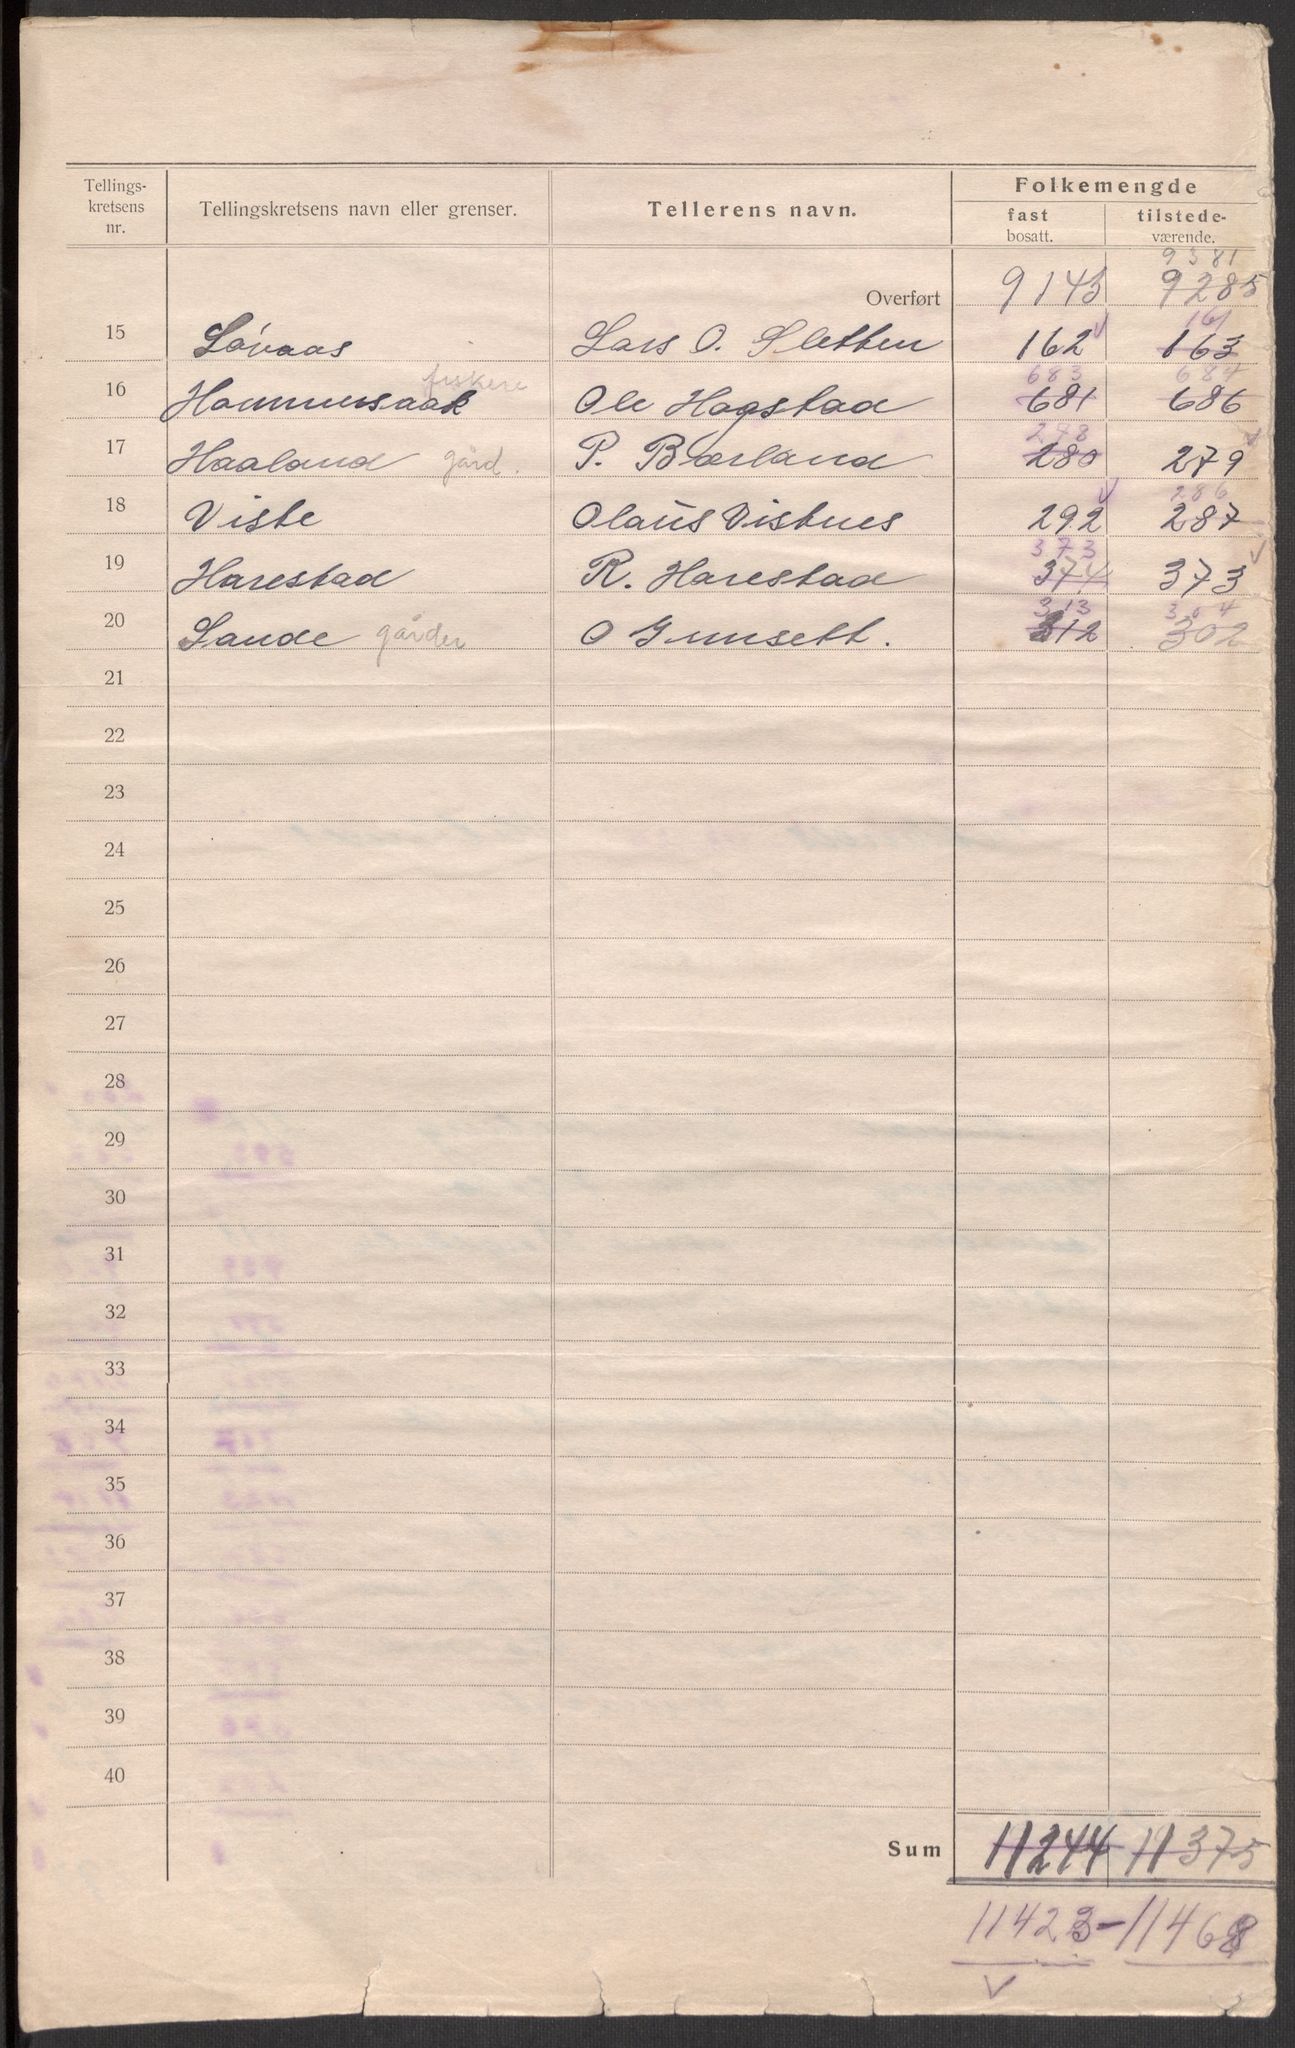 Tellings-
kretsens
nr.
Tellingskretsens navn eller grenser.
Tellerens navn.
Folkemengde
fast
bosatt.
tilstede-
værende.
9381
Overført 9143 9285
161
15 Lövaas Lars O. Sletten 162 163
fiskere 683 684
16 Hommersaak Ole Hogstad 681 686
278
17 Haaland gård. P. Bærland 280 279
286
18 Viste Olaus Vistnes 292 287
373
19 Harestad R. Harestad 374 373
313 304
20 Sande gårder O Grunsett. 312 302
21
22
23
24
25
26
27
28
29
30
31
32
33
34
35
36
37
38
39
40
Sum 11244 11375
11423 - 11468